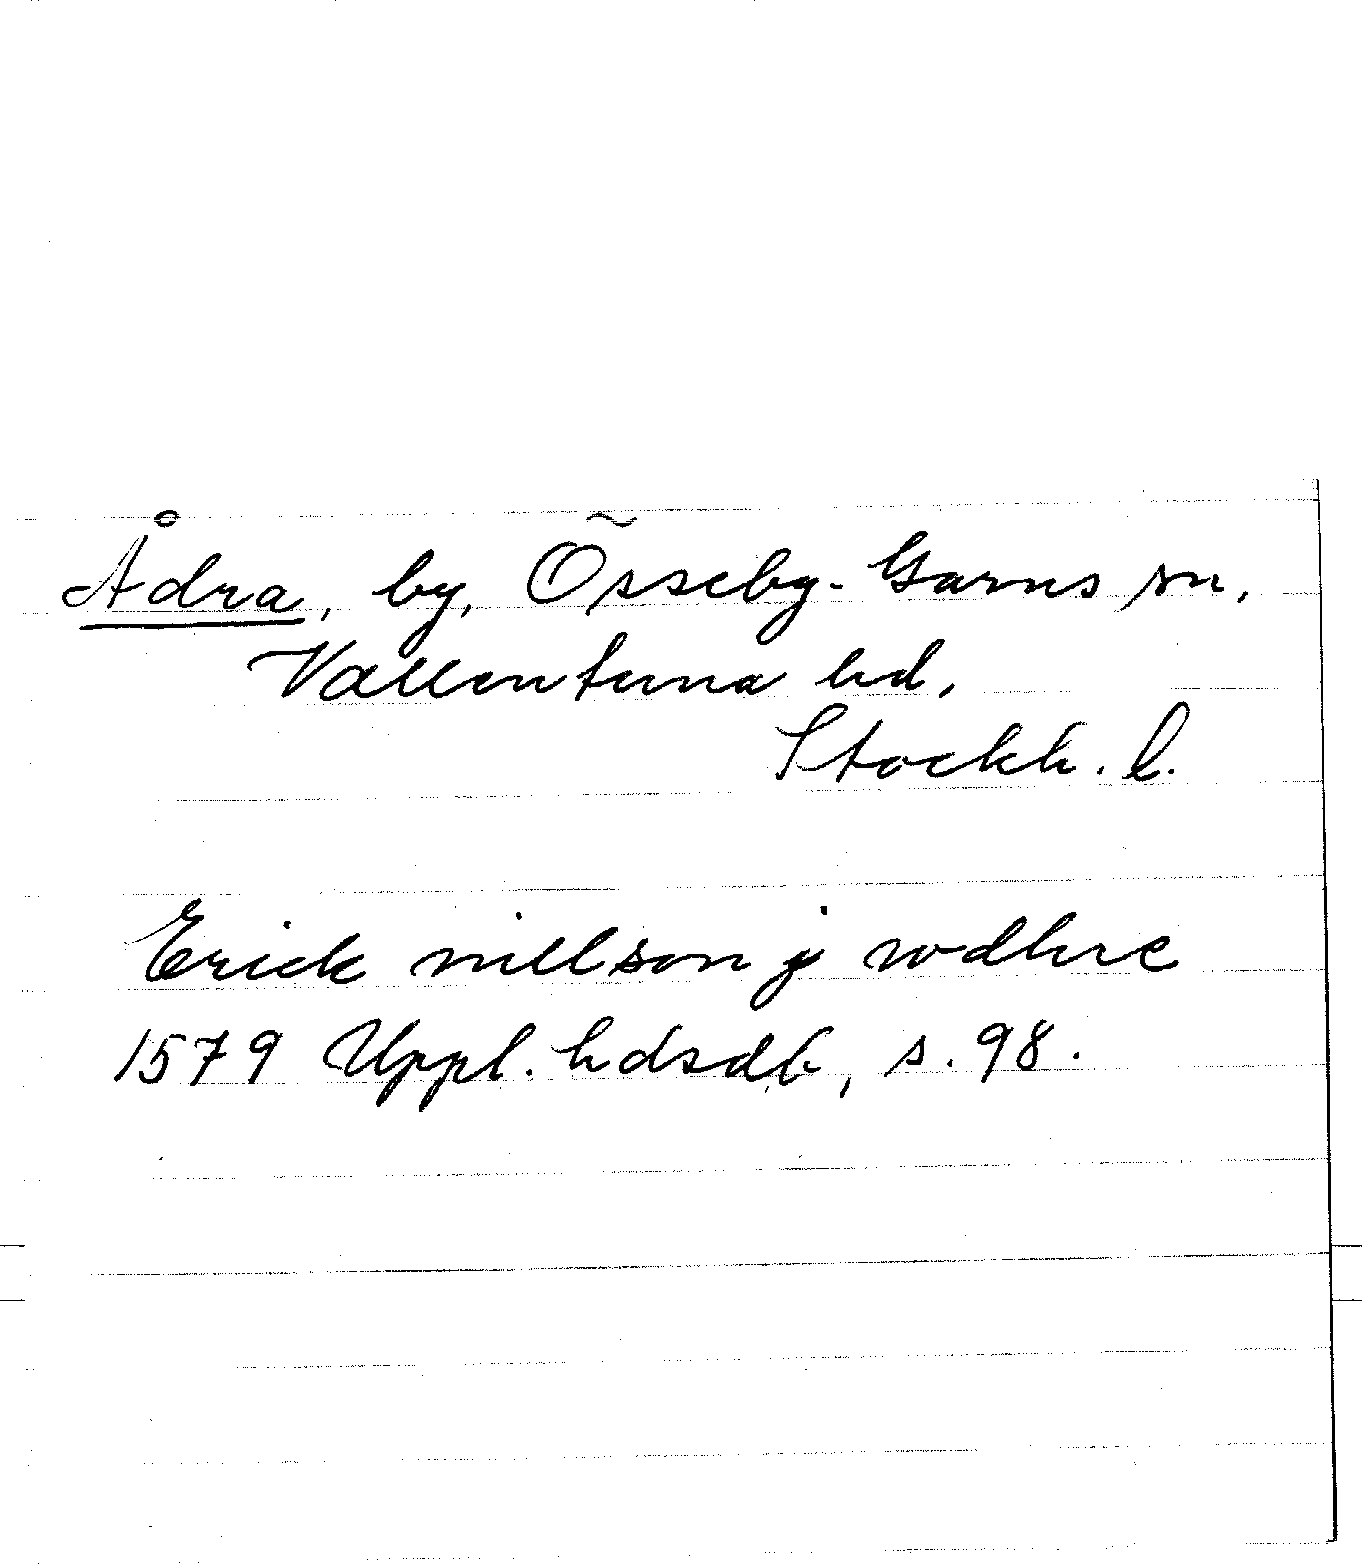 Ådra, by, Össeby-Garns sn,
Vallentuna hd,
Stockh. l.
Erick nillson j wdhre
1579 Uppl. hdsdb, s. 98.